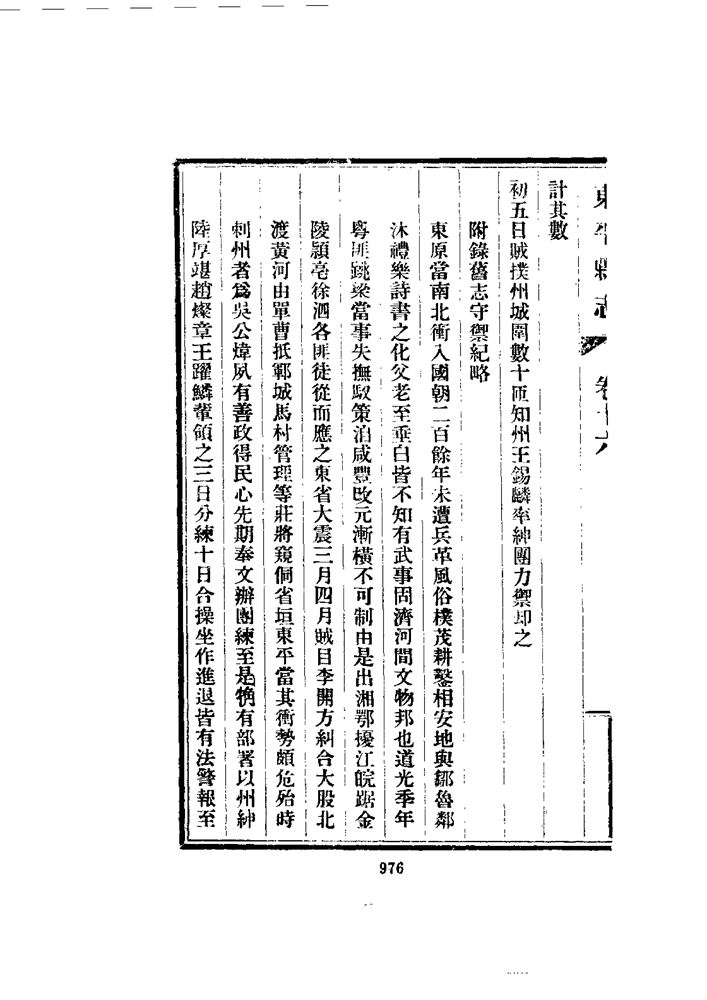 東平縣志 卷十六
計其數
初五日賊撲州城圍數十匝知州王錫麟率紳團力禦却之
附錄舊志守禦紀略
東原當南北衝入國朝二百餘年未遭兵革風俗樸茂耕鑿相安地與鄒魯鄰
沐禮樂詩書之化父老至垂白皆不知有武事固濟河間文物邦也道光季年
粵匪跳梁當事失撫馭策洎咸豐改元漸橫不可制由是出湘鄂擾江皖踞金
陵潁亳徐泗各匪徒從而應之東省大震三月四月賊目李開方糾合大股北
渡黃河由單曹抵鄆城馬村管理等莊將窺伺省垣東平當其衝勢頗危殆時
刺州者為吳公煒夙有善政得民心先期奉文辦團練至是犄角有部署以州紳
陸厚堪趙燦章王躍鱗輩領之三日分練十日合操坐作進退皆有法警報至
976